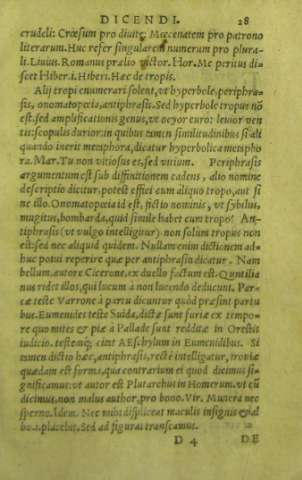 DICENDI. 28
crudeli: Crœsum pro diuite: Mœcenatem pro patrono
literarum. Huc refer singularem numerum pro plura-
li. Liuius. Romanus prælio victor. Hor. Me peritus di-
scet Hiber. i. Hiberi. Hæc de tropis.
Alij tropi enumerari solent, vt hyperbole, periphra-
sis, onomatopeia, antiphrasis. Sed hyperbole tropus nō
est: sed amplificationis genus, vt ocyor euro: leuior ven
tis: scopulis durior: in quibus tamen similitudinibus si ali
quando inerit metaphora, dicatur hyperbolica metapho
ra. Mar. Tu non vitiosus es, sed vitium. Periphrasis
argumentum est sub diffinitionem cadens, alio nomine
descriptio dicitur, potest effici cum aliquo tropo, aut si
ne illo. Onomatopeia id est, fictio nominis, vt sybilus,
mugitus, bombarda, quid simile habet cum tropo? An-
tiphrasis (vt vulgo intelligitur) non solum tropus non
est: sed nec aliquid quidem. Nullam enim dictionem ad-
huc potui reperire quæ per antiphrasin dicatur. Nam
bellum, autore Cicerone, ex duello factum est. Quintilia
nus ridet illos, qui lucum à non lucendo deducunt. Par-
cæ teste Varrone à partu dicuntur quòd præsint partu
bus. Eumenides teste Suida, dictæ sunt furiæ ex tempo-
re quo mites & piæ à Pallade sunt redditæ in Orestis
iudicio. testisq; est AEschylum in Eumenidibus. Si
tamen dictio hæc, antiphrasis, rectè intelligatur, troviæ
quædam est forma, qua contrarium ei quod dicimus si-
gnificamus: vt autor est Plutarchus in Homerum. vt cū
dicimus, non malus author, pro bono. Vir. Munera nec
sperno. Idem. Nec mihi displiceat maculis insignis & al
bo. i. placebit. Sed ad figuras transeamus.
D 4 DE